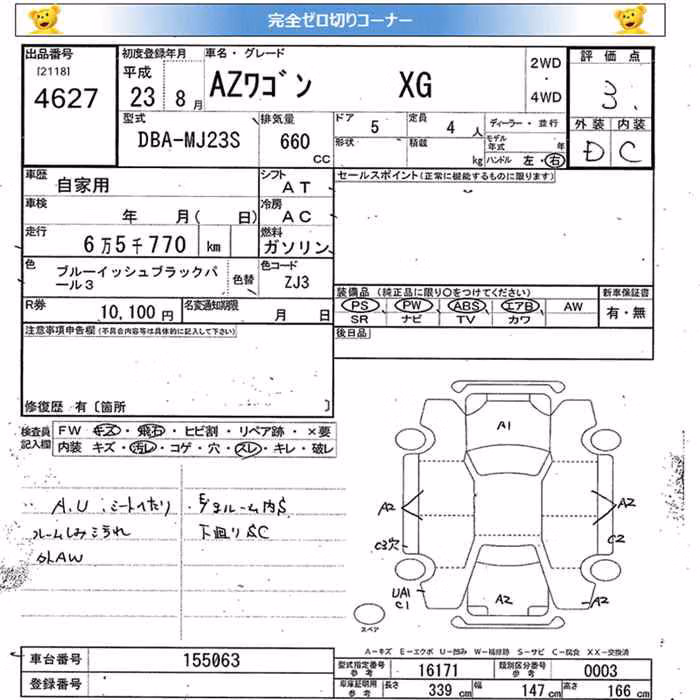 完全ゼロ切りコーナー
出品番号
[2118]
4627
初度登録年月
平成
23 8月
車名・グレード
AZワゴン XG
2WD
・
4WD
評価点
3.
外装 内装
D C
型式
DBA-MJ23S
排気量
660
cc
ドア
5
定員
4 人
ディーラー・並行
形状
積載
kg
モデル
年式 年
ハンドル 左・右
車歴
自家用
シフト
AT
セールスポイント(正常に機能するものに限ります)
車検
年 月( 日)
冷房
AC
走行
6万5千770 km
燃料
ガソリン
色
ブルーイッシュブラックパ
ール3
色替
色コード
ZJ3
装備品 (純正品に限り○をつけてください)
新車保証書
PS PW ABS エアB AW
有・無
SR ナビ TV カワ
R券
10,100円
名変通知期限
月 日
後日品
注意事項申告欄(不具合内容等は具体的に記入して下さい)
修復歴 有〔箇所 〕
検査員
記入欄
FW キズ・飛石・ヒビ割・リペア跡・×要
内装 キズ・汚レ・コゲ・穴・スレ・キレ・破レ
A.U シートへたり
ルームしみ こうれ
外AW
ルーム内S
下廻りSC
A1
A2
A2
C3穴
C2
UA1
C1
A2
A2
スペア
A-キズ E-エクボ U-凹み W-補修跡 S-サビ C-腐食 XX-交換済
車台番号
155063
登録番号
型式指定番号
参考
16171
類別区分番号
参考
0003
車庫証明用
参考
長さ
339 cm
幅
147 cm
高さ
166 cm